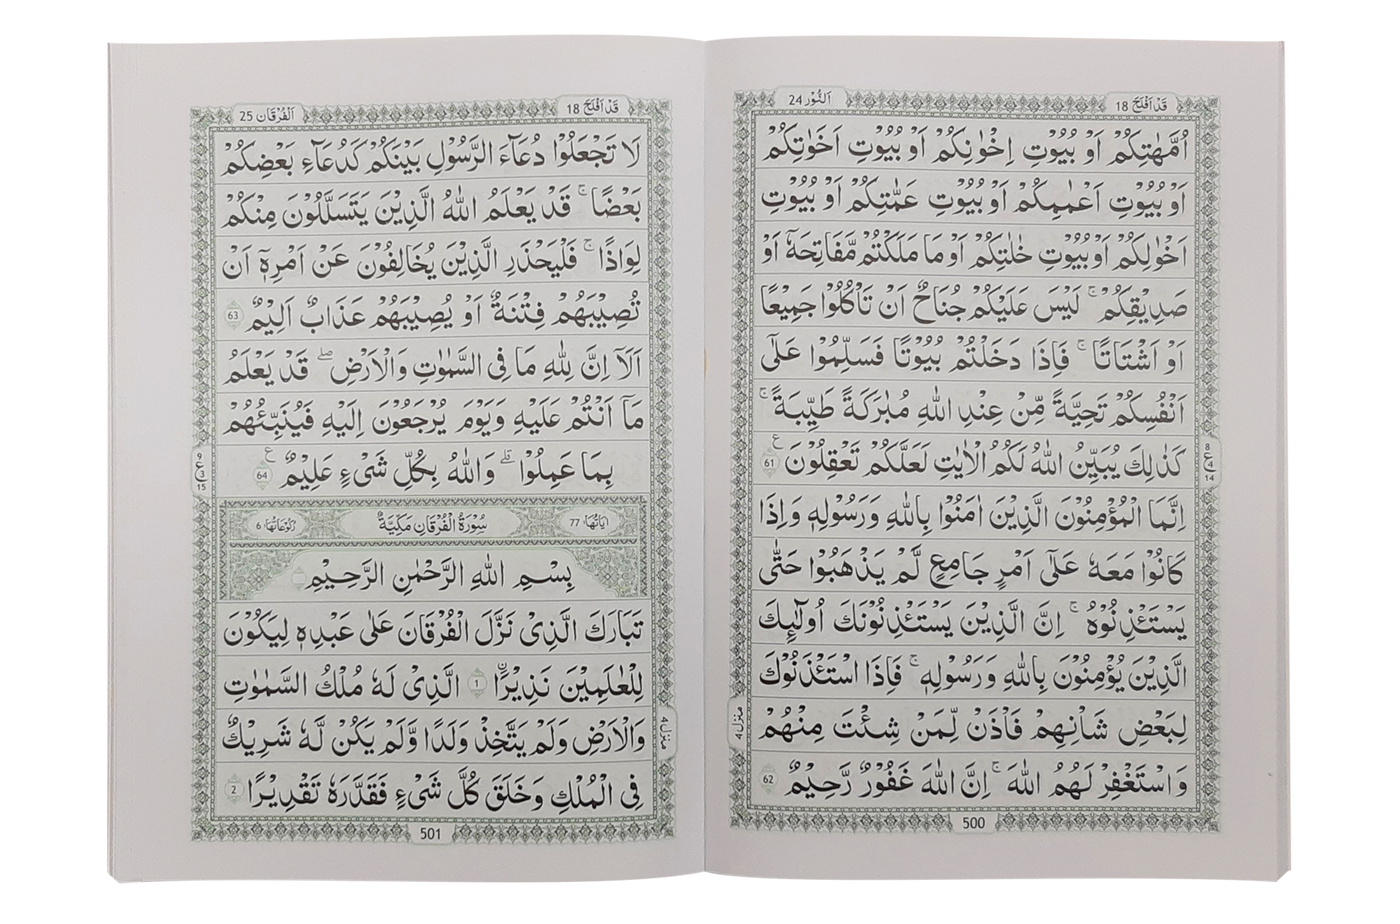 قَدْ اَفْلَحَ 18
اَلنُّوْر 24
اُمَّهٰتِكُمْ اَوْ بُيُوْتِ اِخْوَانِكُمْ اَوْ بُيُوْتِ اَخَوٰتِكُمْ
اَوْ بُيُوْتِ اَعْمَامِكُمْ اَوْ بُيُوْتِ عَمّٰتِكُمْ اَوْ بُيُوْتِ
اَخْوَالِكُمْ اَوْ بُيُوْتِ خٰلٰتِكُمْ اَوْ مَا مَلَكْتُمْ مَّفَاتِحَهٗٓ اَوْ
صَدِيْقِكُمْ ۚ لَيْسَ عَلَيْكُمْ جُنَاحٌ اَنْ تَاْكُلُوْا جَمِيْعًا
اَوْ اَشْتَاتًا ۚ فَاِذَا دَخَلْتُمْ بُيُوْتًا فَسَلِّمُوْا عَلٰٓى
اَنْفُسِكُمْ تَحِيَّةً مِّنْ عِنْدِ اللّٰهِ مُبٰرَكَةً طَيِّبَةً ۚ
كَذٰلِكَ يُبَيِّنُ اللّٰهُ لَكُمُ الْاٰيٰتِ لَعَلَّكُمْ تَعْقِلُوْنَ 61 ع
8
ع 4
14
اِنَّمَا الْمُؤْمِنُوْنَ الَّذِيْنَ اٰمَنُوْا بِاللّٰهِ وَرَسُوْلِهٖ وَاِذَا
كَانُوْا مَعَهٗ عَلٰٓى اَمْرٍ جَامِعٍ لَّمْ يَذْهَبُوْا حَتّٰى
يَسْتَاْذِنُوْهُ ۚ اِنَّ الَّذِيْنَ يَسْتَاْذِنُوْنَكَ اُولٰٓئِكَ
الَّذِيْنَ يُؤْمِنُوْنَ بِاللّٰهِ وَرَسُوْلِهٖ ۚ فَاِذَا اسْتَاْذَنُوْكَ
لِبَعْضِ شَاْنِهِمْ فَاْذَنْ لِّمَنْ شِئْتَ مِنْهُمْ
منزل ٤
وَاسْتَغْفِرْ لَهُمُ اللّٰهَ ۚ اِنَّ اللّٰهَ غَفُوْرٌ رَّحِيْمٌ 62
500
قَدْ اَفْلَحَ 18
اَلْفُرْقَان 25
لَا تَجْعَلُوْا دُعَآءَ الرَّسُوْلِ بَيْنَكُمْ كَدُعَآءِ بَعْضِكُمْ
بَعْضًا ۚ قَدْ يَعْلَمُ اللّٰهُ الَّذِيْنَ يَتَسَلَّلُوْنَ مِنْكُمْ
لِوَاذًا ۚ فَلْيَحْذَرِ الَّذِيْنَ يُخَالِفُوْنَ عَنْ اَمْرِهٖٓ اَنْ
تُصِيْبَهُمْ فِتْنَةٌ اَوْ يُصِيْبَهُمْ عَذَابٌ اَلِيْمٌ 63
اَلَآ اِنَّ لِلّٰهِ مَا فِى السَّمٰوٰتِ وَالْاَرْضِ ۖ قَدْ يَعْلَمُ
مَآ اَنْتُمْ عَلَيْهِ وَيَوْمَ يُرْجَعُوْنَ اِلَيْهِ فَيُنَبِّئُهُمْ
بِمَا عَمِلُوْا ۗ وَاللّٰهُ بِكُلِّ شَىْءٍ عَلِيْمٌ 64 ع
9
ع 3
15
اٰيَاتُهَا، 77 سُوْرَةُ الْفُرْقَانِ مَكِّيَّةٌ رُكُوْعَاتُهَا، 6
بِسْمِ اللّٰهِ الرَّحْمٰنِ الرَّحِيْمِ
تَبَارَكَ الَّذِىْ نَزَّلَ الْفُرْقَانَ عَلٰى عَبْدِهٖ لِيَكُوْنَ
لِلْعٰلَمِيْنَ نَذِيْرًا 1 الَّذِىْ لَهٗ مُلْكُ السَّمٰوٰتِ
وَالْاَرْضِ وَلَمْ يَتَّخِذْ وَلَدًا وَّلَمْ يَكُنْ لَّهٗ شَرِيْكٌ
منزل ٤
فِى الْمُلْكِ وَخَلَقَ كُلَّ شَىْءٍ فَقَدَّرَهٗ تَقْدِيْرًا 2
501